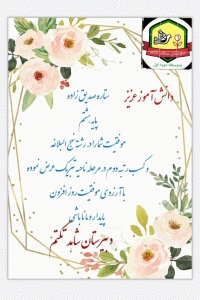 دانش آموز عزیز ستاره صدیق زاده
پایه هشتم
موفقیت شما را در رشته نهج البلاغه
و کسب رتبه دوم در مرحله ناحیه تبریک عرض نموده
با آرزوی موفقیت روز افزون
پایدار و مانا باشی
دبیرستان شاهد تکتم